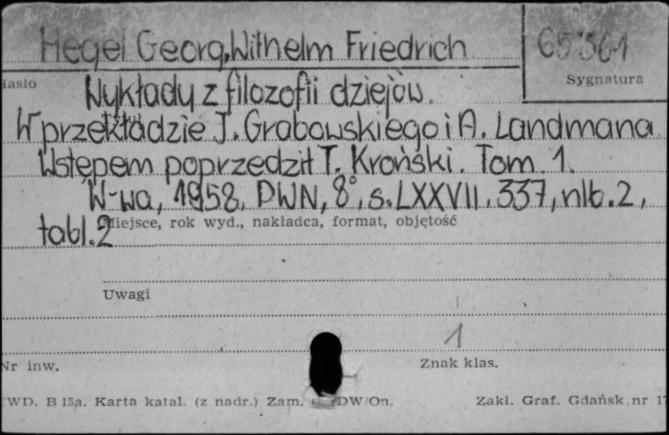 Hegel Georg, Wilhelm Friedrich
65561
Sygnatura
Hasło
Wykłady z filozofii dziejów.
W przekładzie J. Grabowskiego i A. Landmana.
Wstępem poprzedził T. Kroński. Tom 1.
W-wa, 1958, PWN, 8°, s. LXXVII, 337, nlb. 2,
tabl. 2
Miejsce, rok wyd., nakładca, format, objętość
Uwagi
1
Nr inw.
Znak klas.
WD. B 15a. Karta katal. (z nadr.) Zam. DW/On.
Zakł. Graf. Gdańsk nr